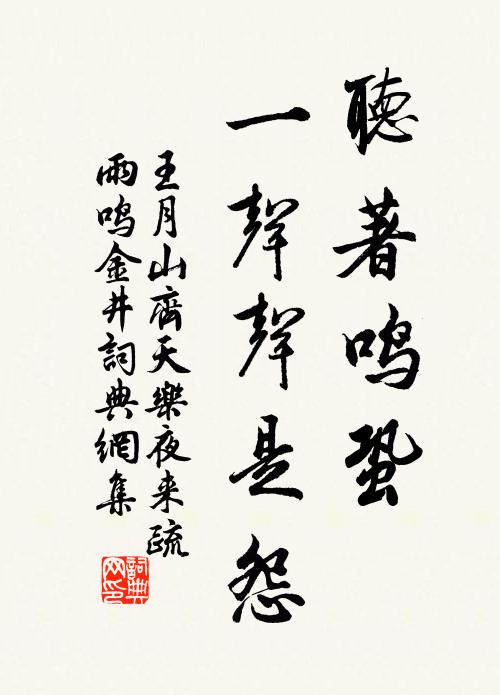 聽著鳴蛩
一聲聲是怨
王月山齊天樂夜来疏
雨鳴金井詞典網集
詞典
网印